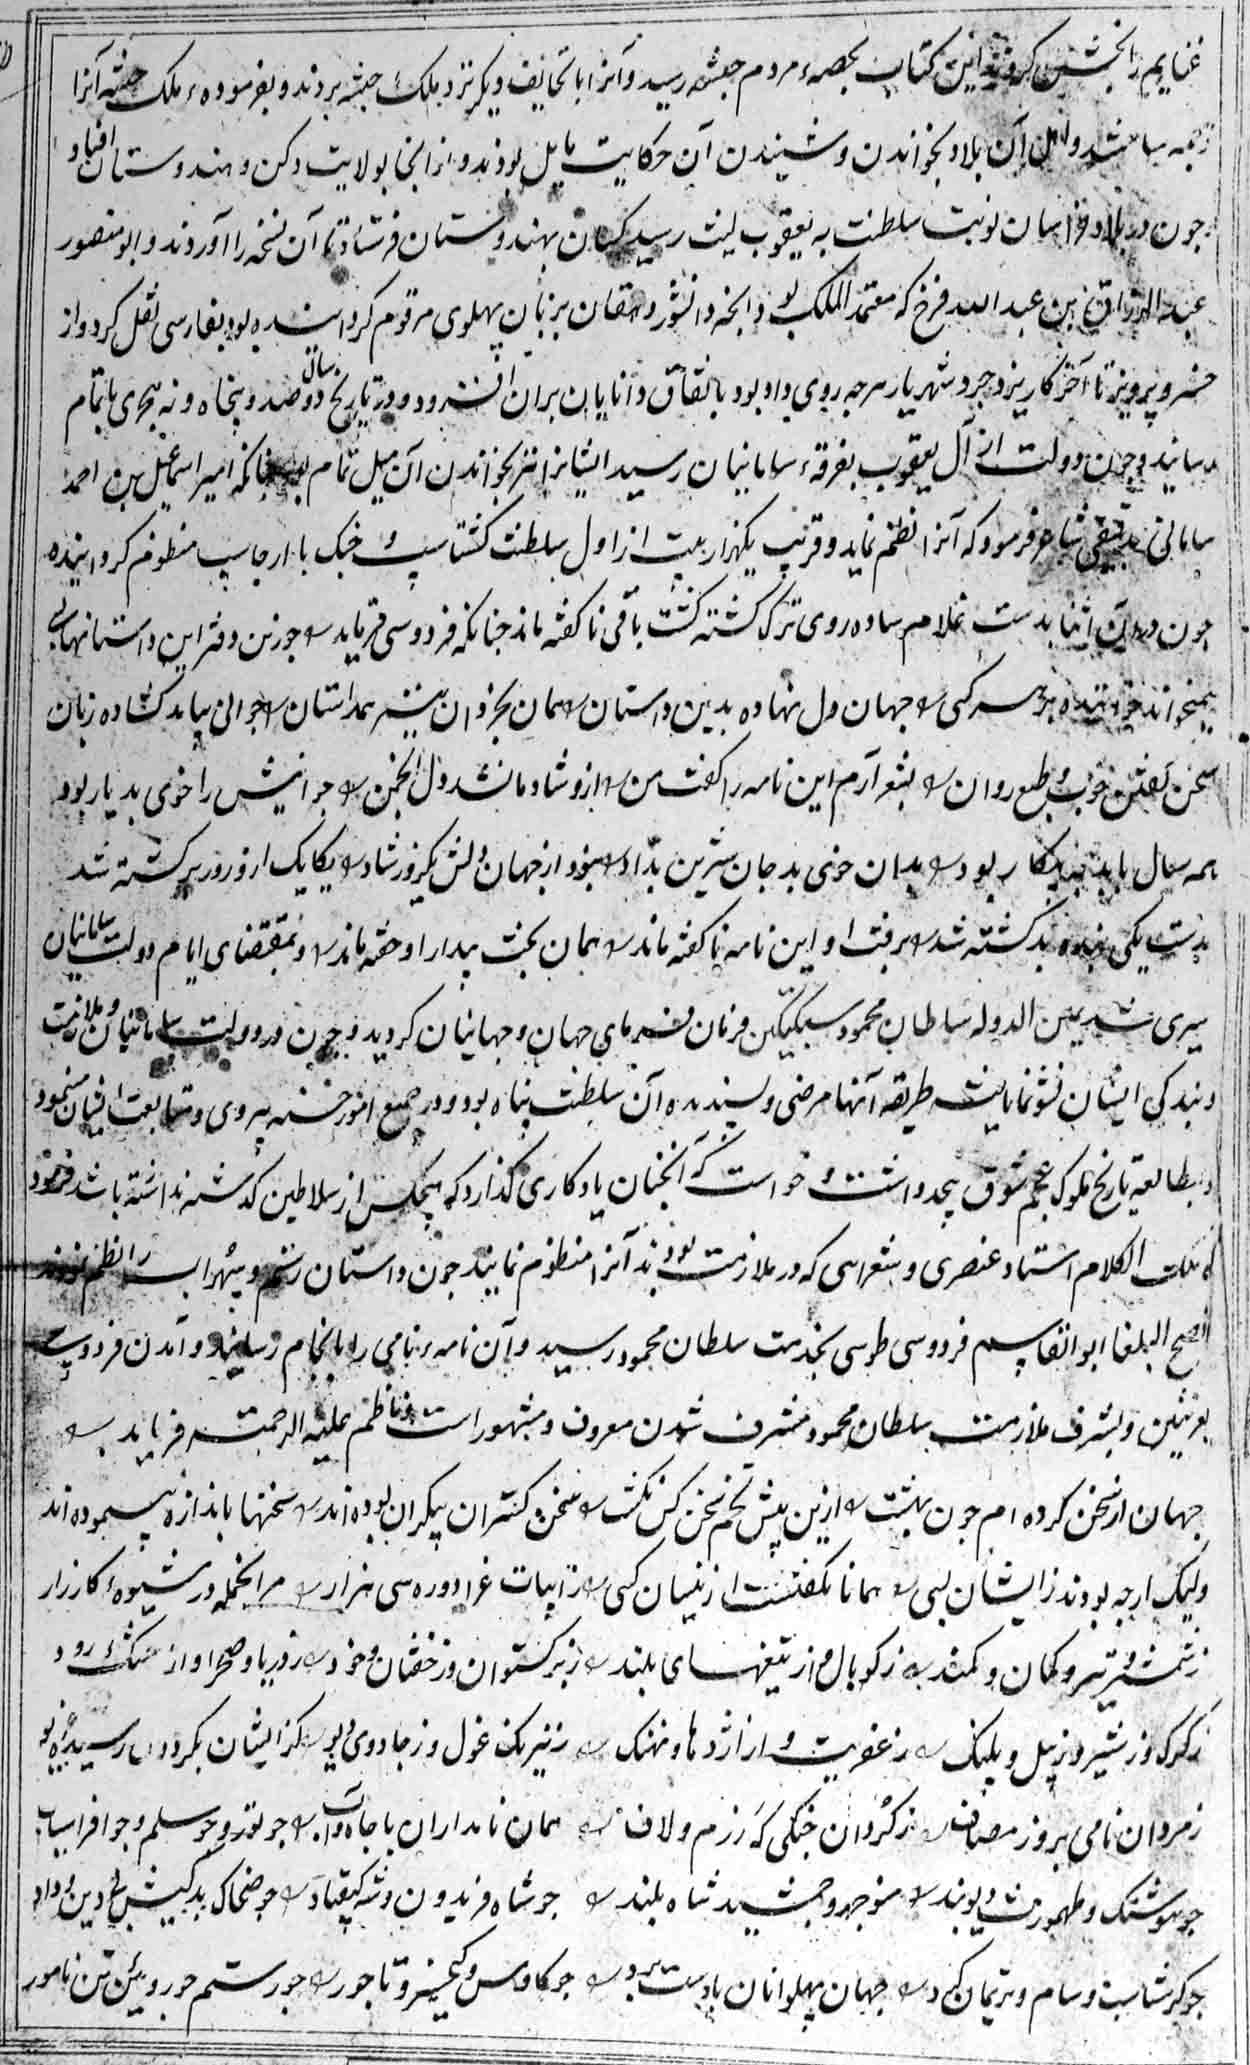 غنایم را بخش کردند این کتاب بحصهٔ مردم حبشه رسید و آنرا با تحایف دیگر نزد ملک حبشه بردند و بفرمودهٔ ملک حبشه آنرا
ترجمه ساختند و اهل آن بلاد بخواندن و شنیدن آن حکایت مایل بودند و از انجا بولایت دکن و هندوستان افتاد و
چون در بلاد خراسان نوبت سلطنت به یعقوب لیث رسید کسان بهندوستان فرستاد تا آن نسخه را آوردند و ابو منصور
عبد الرزاق بن عبد الله فرخ که معتمد الملک بود و انچه دانشور دهقان بزبان پهلوی مرقوم کردانیده بود بفارسی نقل کرد و از
خسرو پرویز تا آخر کار یزدجرد شهریار هرچه روی داد بود باتفاق دانایان بران افزود و در تاریخ سال دو صد و پنجاه و نه هجری باتمام
رسانید و چون دولت از آل یعقوب بفرقهٔ سامانیان رسید ایشانرا نیز بخواندن آن میل تمام بود چنانکه امیر اسماعیل بن احمد
سامانی بدقیقی شاعر فرمود که آنرا نظم نماید و قریب یکهزار بیت از اول سلطنت کشتاسپ و جنک با ارجاسپ منظوم کردانیده
چون درین اثنا بدست غلام ساده روی ترک کشته کشت باقی ناکفته ماند چنانکه فردوسی فرماید چو زین دفتر این داستانها بسی
همیخواند خواننده بر هر کسی جهان دل نهاده بدین داستان همان بخردان نیز همداستان جوانی بیامد کشاده زبان
سخن کفتن خوب و طبع روان بشعر آرم این نامه را کفت من ازو شادمان شد دل انجمن جوانیش را خوی بد یار بود
همه سال با بد به پیکار بود بدان خوی بد جان شیرین بداد نبود از جهان دلش یکروز شاد یکایک ازو روز برکشته شد
بدست یکی بنده بد کشته شد برفت او و این نامه ناکفته ماند همان بخت بیدار او خفته ماند و بمقتضای ایام دولت سامانیان
سپری شد یمین الدوله سلطان محمود سبکتکین فرمان فرمای جهان و جهانیان کردید و چون در دولت سامانیان و ملازمت
و بندکی ایشان نشو نما یافته طریقه آنها مرضی و پسندیده آن سلطنت پناه بود و در جمیع امور حسنه پیروی و متابعت ایشان مینمود
و بمطالعه تاریخ ملوک عجم شوق بیحد داشت و خواست که آنچنان یادکاری کذارد که هیچکس از سلاطین کذشته نداشته باشد فرمود
که ملک الکلام استاد عنصری و شعرایی که در ملازمت بودند آنرا منظوم نمایند چون داستان رستم و سهراب را نظم نمودند
افصح البلغا ابو القاسم فردوسی طوسی بخدمت سلطان محمود رسید و آن نامهٔ نامی را بانجام رسانید و آمدن فردوسی
بغزنین و بشرف ملازمت سلطان محمود مشرف شدن معروف و مشهور است و ناظم علیه الرحمت فرماید
جهان از سخن کرده ام چون بهشت ازین پیش تخم سخن کس نکشت سخن کستران بیکران بوده اند سخنها باندازه پیموده اند
ولیک ارچه بودند زایشان بسی همانا نکفتست ازینسان کسی ز ابیات غرا دوره سی هزار مر انجمله در شیوهٔ کارزار
ز شمشیر و تیر و کمان و کمند ز کوپال و از تیغهای بلند ز برکستوان و ز خفتان و خود ز دریا و صحرا و از خشک رود
ز کرک و ز شیر و ز پیل و پلنک ز عفریت و از اژدها و نهنک ز نیرنک غول و ز جادوی دیو کزایشان بکردون رسیده غریو
ز مردان نامی بروز مصاف ز کردان جنکی که رزم و لاف همان نامداران با جاه و آب چو تور و چو سلم و چو افراسیاب
چو هوشنک و طهمورث دیوبند منوچهر و جمشید شاه بلند چو شاه فریدون و شه کیقباد چو ضحاک بدکیش بی دین و داد
چو کرشاسپ و سام و نریمان کرد جهان پهلوانان با دستبرد چو کاوس و کیخسرو تاجور چو رستم چو رویین تن نامور